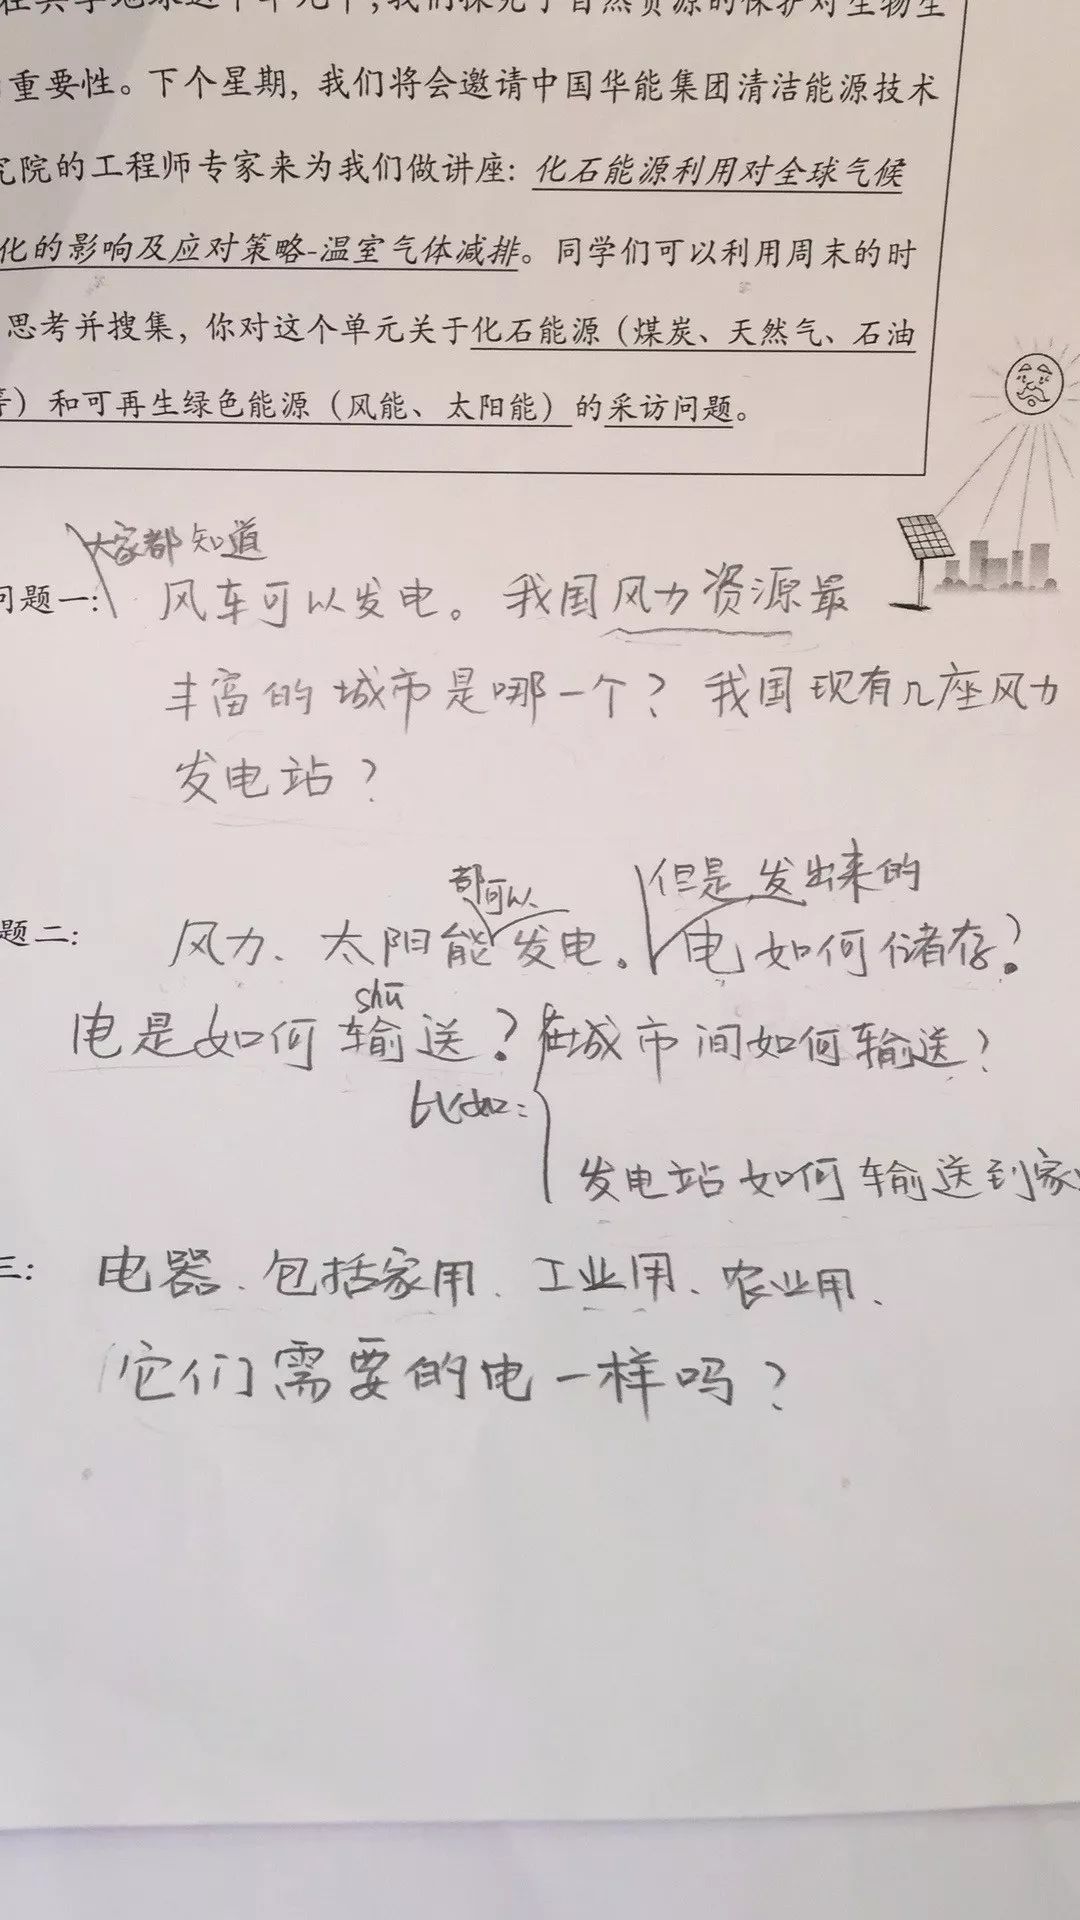 在共享地球这个单元中,我们探究了自然资源的保护对生物生
重要性。下个星期,我们将会邀请中国华能集团清洁能源技术
究院的工程师专家来为我们做讲座:化石能源利用对全球气候
化的影响及应对策略-温室气体减排。同学们可以利用周末的时
思考并搜集,你对这个单元关于化石能源(煤炭、天然气、石油
等)和可再生绿色能源(风能、太阳能)的采访问题。
大家都知道
问题一: 风车可以发电。我国风力资源最
丰富的城市是哪一个?我国现有几座风力
发电站?
都可以 但是,发出来的
题二: 风力、太阳能发电。电如何储存?
shū
电是如何输送?在城市间如何输送?
比如:
发电站如何输送到家
三: 电器、包括家用、工业用、农业用、
它们需要的电一样吗?